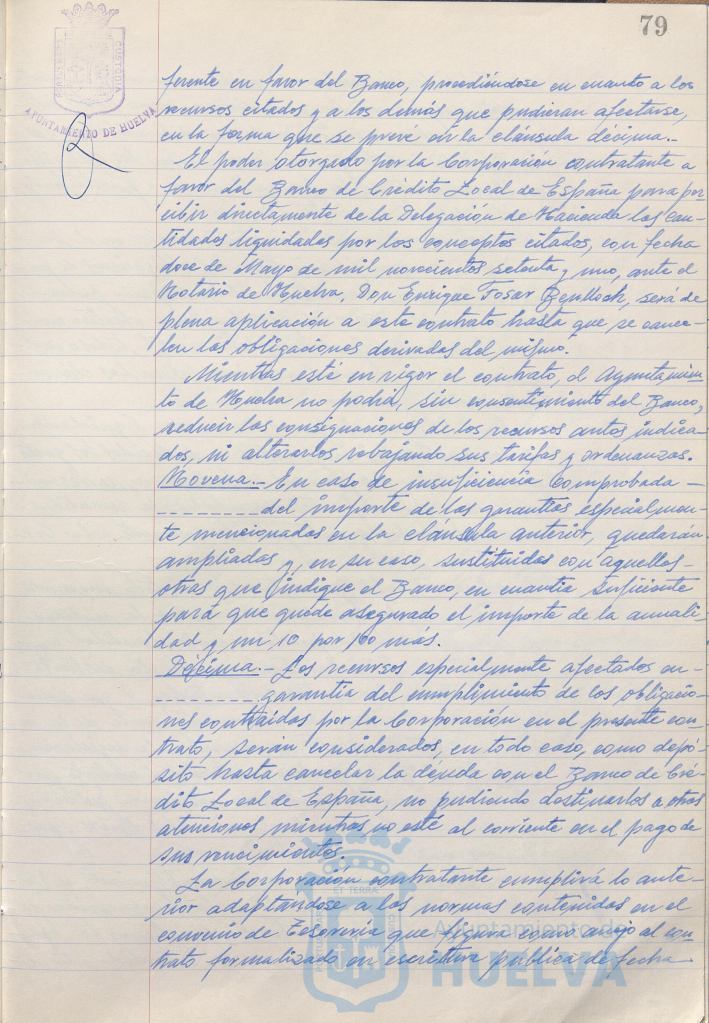 79
AYUNTAMIENTO DE HUELVA
ferente en favor del Banco, procediéndose en cuanto a los
recursos citados y a los demás que pudieran afectarse,
en la forma que se prevé en la cláusula décima.-
El poder otorgado por la Corporación contratante a
favor del Banco de Crédito Local de España para per-
cibir directamente de la Delegación de Hacienda las can-
tidades liquidadas por los conceptos citados, con fecha
doce de Mayo de mil novecientos setenta y uno, ante el
Notario de Huelva, Don Enrique Tosar Benlloch, será de
plena aplicación a este contrato hasta que se cance-
len las obligaciones derivadas del mismo.
Mientras esté en vigor el contrato, el Ayuntamien-
to de Huelva no podrá, sin consentimiento del Banco,
reducir las consignaciones de los recursos antes indica-
dos, ni alterarlos rebajando sus tarifas y ordenanzas.
Novena.- En caso de insuficiencia comprobada -
- - - - - - - - del importe de las garantías especialmen-
te mencionadas en la cláusula anterior, quedarán
ampliadas y, en su caso, sustituidas con aquellas-
otras que indique el Banco, en cuantía suficiente
para que quede asegurado el importe de la anuali-
dad y un 10 por 100 más.
Décima.- Los recursos especialmente afectados en-
- - - - - - - - garantía del cumplimiento de las obligacio-
nes contraidas por la Corporación en el presente con-
trato, serán considerados, en todo caso, como depó-
sito hasta cancelar la deuda con el Banco de Cré-
dito Local de España, no pudiendo destinarlos a otras
atenciones mientras no esté al corriente en el pago de
sus vencimientos.
La Corporación contratante cumplirá lo ante-
rior adaptándose a las normas contenidas en el
convenio de Tesorería que figura como anejo al con-
trato formalizado en escritura pública de fecha-
Ayuntamiento de
HUELVA